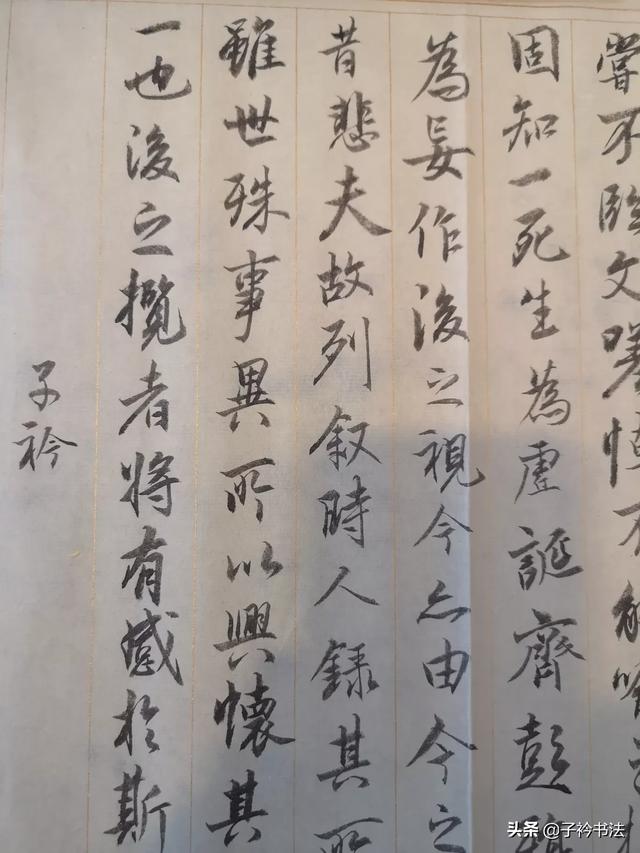 嘗不臨文嗟悼不能喻之
固知一死生為虛誕齊彭殤
為妄作後之視今亦由今之
昔悲夫故列敘時人錄其所
雖世殊事異所以興懷其
一也後之攬者將有感於斯
子衿
头条 @子衿书法